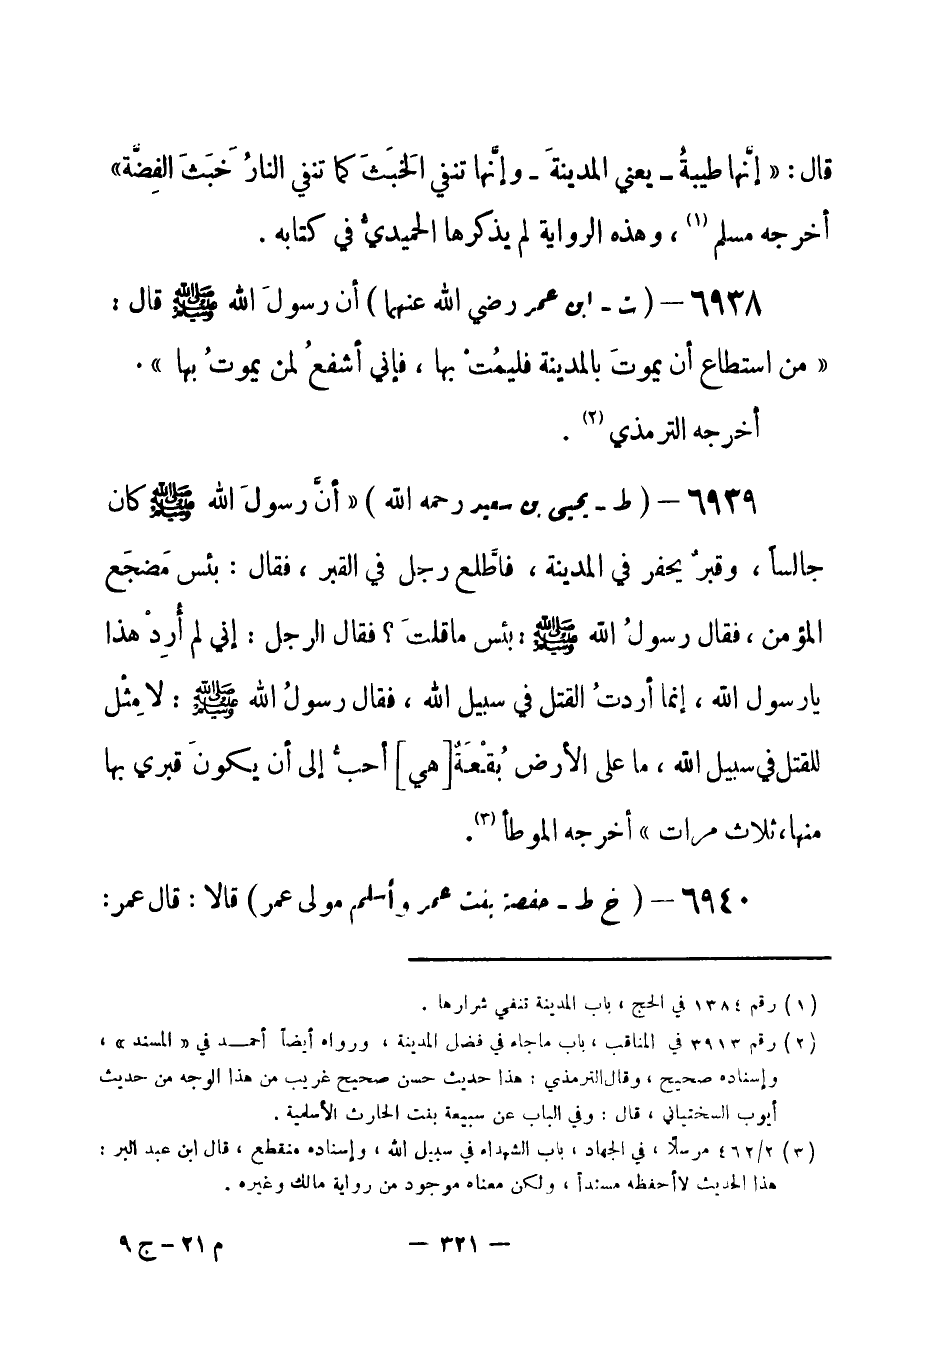 قال: « إنَّها طيبةُ ـ يعني المدينةَ ـ وإنَّها تنفي الخَبَثَ كما تنفي النارُ خَبَثَ الفِضَّة»
أخرجه مسلم (١) ، وهذه الرواية لم يذكرها الحميديُّ في كتابه .
٦٩٣٨ – ( ت ـ ابن عمر رضي الله عنهما ) أن رسولَ الله ﷺ قال :
« من استطاع أن يموتَ بالمدينة فليمُتْ بها ، فإني أشفعُ لمن يموتُ بها » .
أخرجه الترمذي (٢) .
٦٩٣٩ – ( ط ـ يحيى بن سعيد رحمه الله ) « أنَّ رسولَ الله ﷺ كان
جالساً ، وقبرٌ يحفر في المدينة ، فاطَّلع رجل في القبر ، فقال : بئس مَضجَع
المؤمن ، فقال رسولُ الله ﷺ : بئس ماقلتَ ؟ فقال الرجل : إني لم أُرِدْ هذا
يارسول الله ، إنما أردتُ القتل في سبيل الله ، فقال رسولُ الله ﷺ : لا مِثْل
للقتل في سبيل الله ، ما على الأرض بُقْعَةٌ [هي] أحبُّ إلى أن يكونَ قبري بها
منها، ثلاث مرات » أخرجه الموطأ (٣) .
٦٩٤٠ – ( خ ط ـ حفصة بنت عمر وأسلم مولى عمر ) قالا : قال عمر:
(١) رقم ١٣٨٤ في الحج ، باب المدينة تنفي شرارها .
(٢) رقم ٣٩١٣ في المناقب ، باب ماجاء في فضل المدينة ، ورواه أيضاً أحمـد في « المسند » ،
وإسناده صحيح ، وقال الترمذي : هذا حديث حسن صحيح غريب من هذا الوجه من حديث
أيوب السختياني ، قال : وفي الباب عن سبيعة بنت الحارث الأسلمية .
(٣) ٤٦٢/٢ مرسلًا ، في الجهاد ، باب الشهداء في سبيل الله ، وإسناده منقطع ، قال ابن عبد البر :
هذا الحديث لاأحفظه مسنداً ، ولكن معناه موجود من رواية مالك وغيره .
– ٣٢١ –
م ٢١ – ج ٩